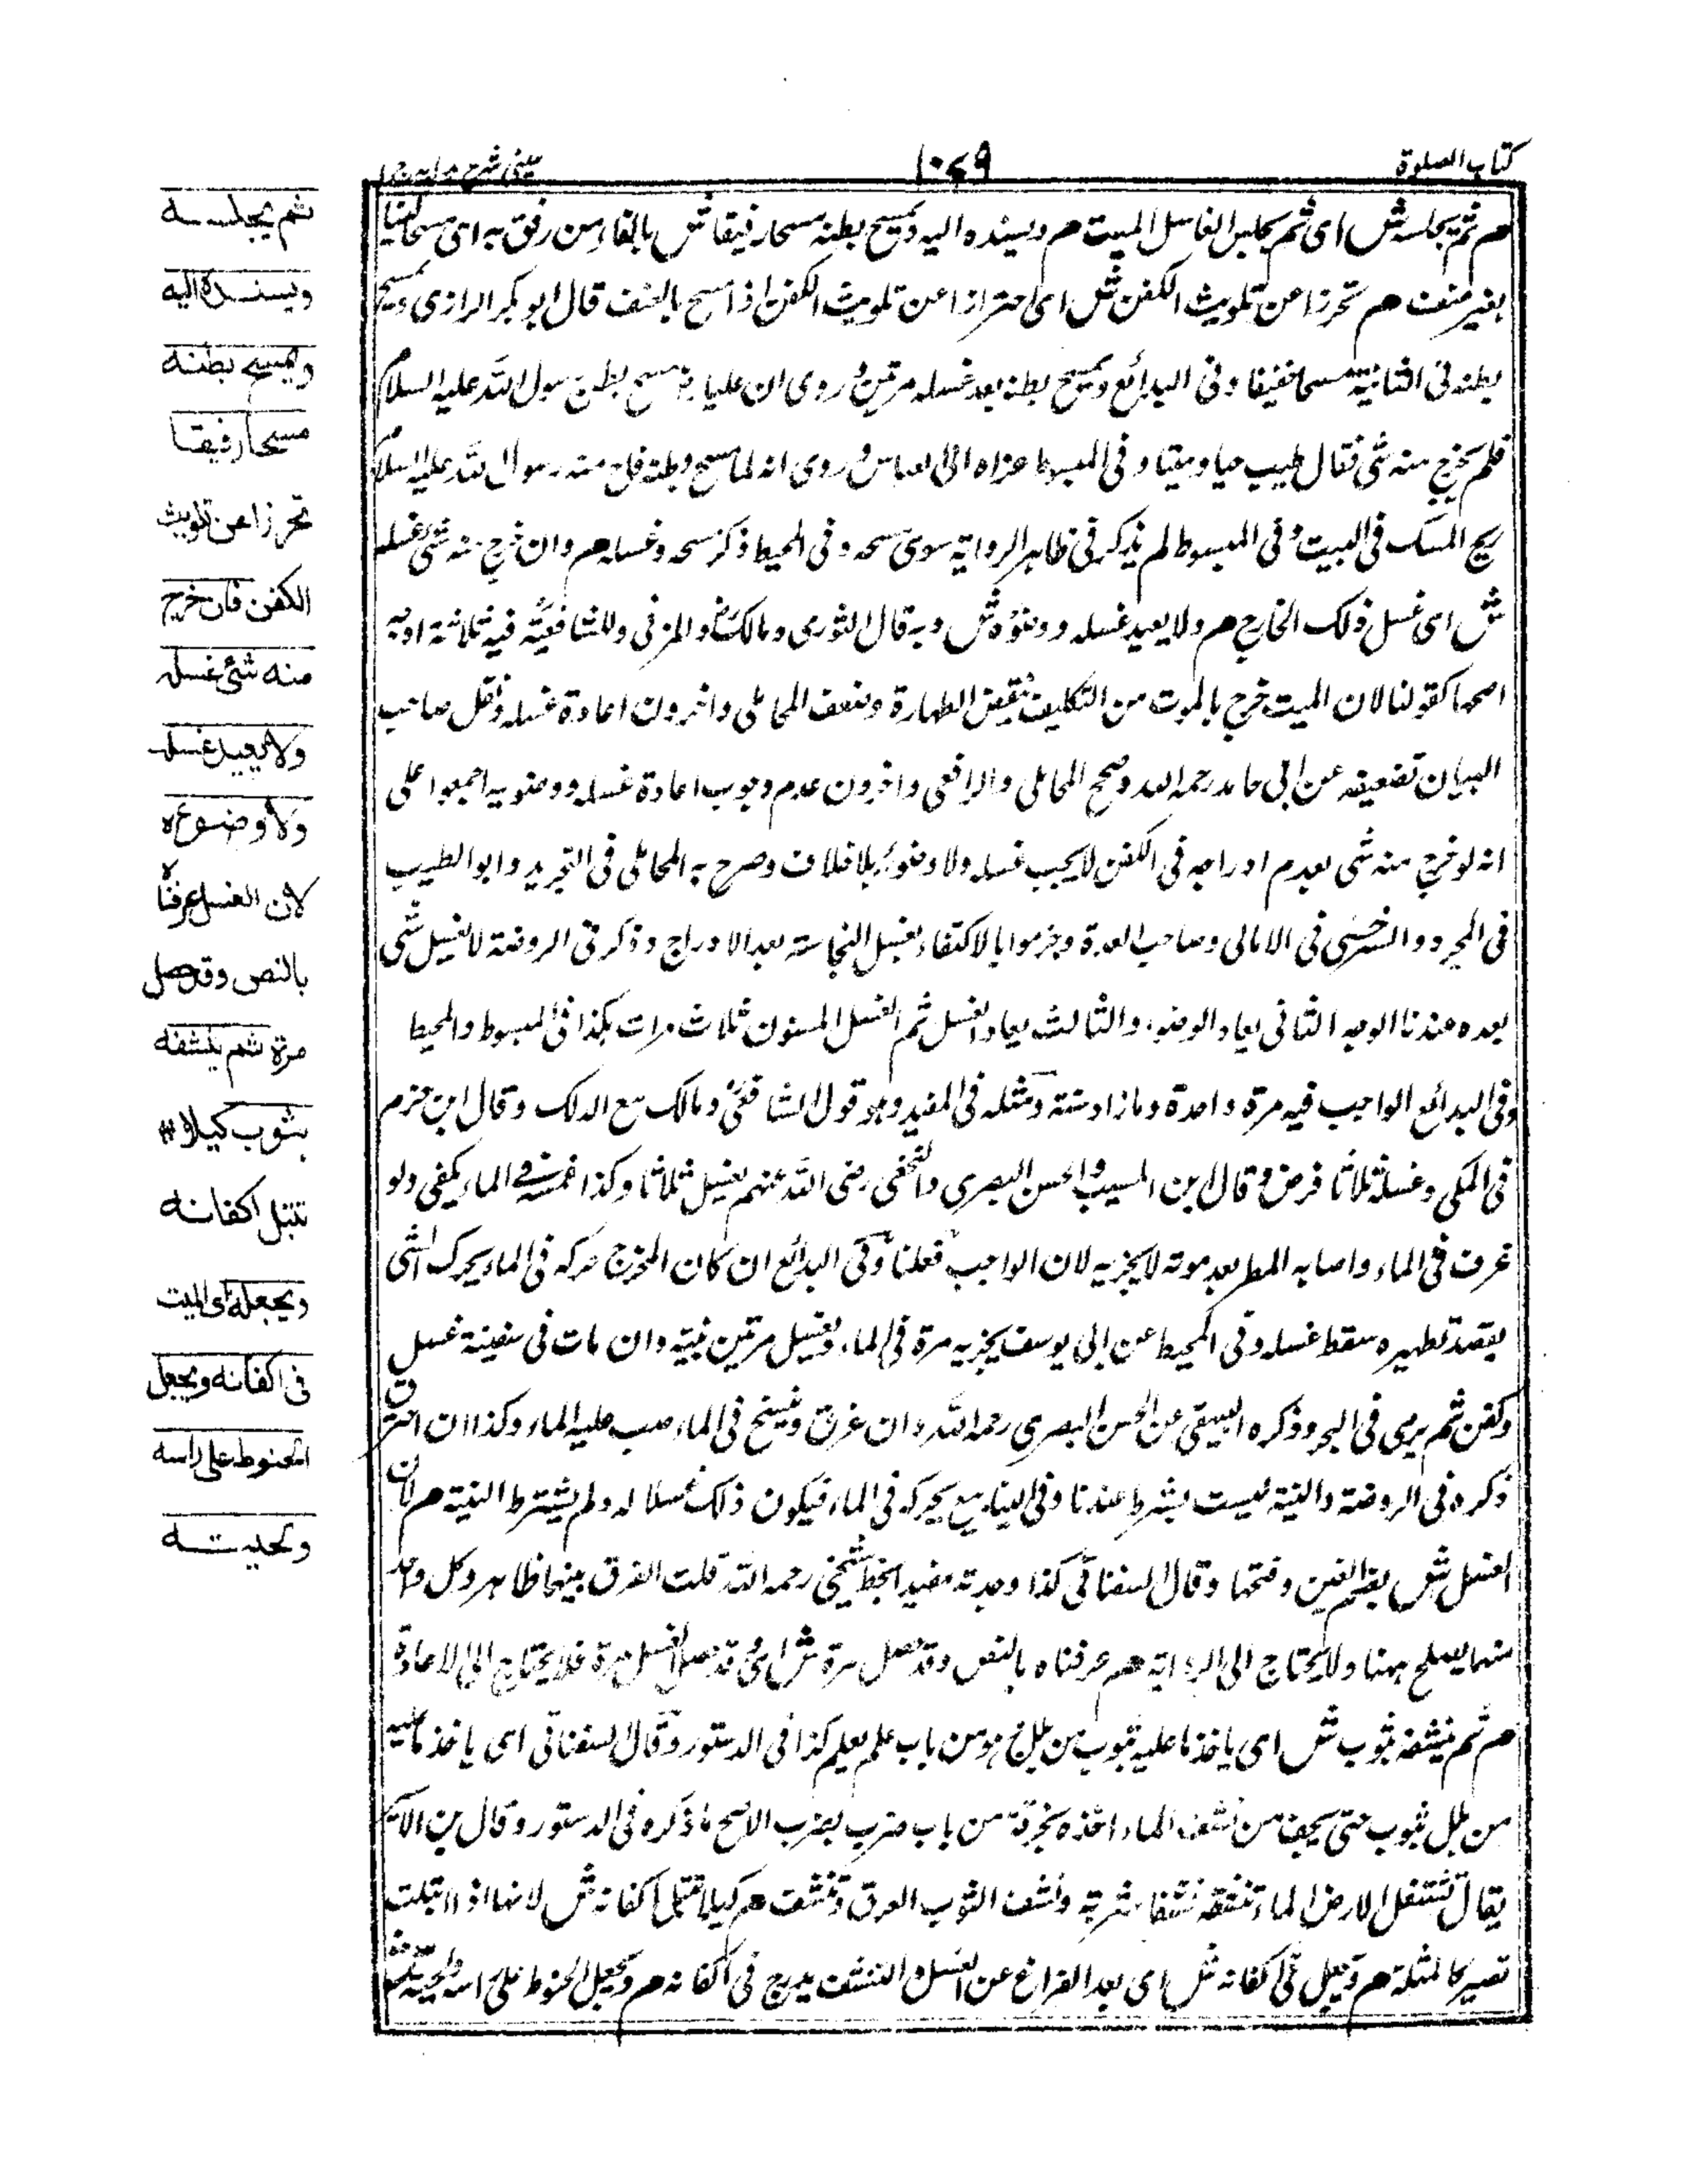 كتاب الصلوة
١٠٤٩
عينى شرح هدايه ج ١
هم ثم يجلسه ش اى ثم يجلس الغاسل الميت هم ويسنده اليه ويمسح بطنه مسحا رفيقا ش بالفاء من رفق به اى مسحا لينا
بغير عنف هم تحرزا عن تلويث الكفن ش اى احترازا عن تلويث الكفن اذا مسح بالعنف قال ابو بكر الرازى ويمسح
بطنه فى الثانية مسحا خفيفا وفى البدائع ويمسح بطنه بعد غسله مرتين وروى ان عليا رض مسح بطن رسول الله عليه السلام
فلم يخرج منه شئ فقال طيب حيا وميتا وفى المبسوط عزاه الى العباس وروى انه لما مسح بطنه فاح منه رسول الله عليه السلام
ريح المسك فى البيت وفى المبسوط لم يذكر فى ظاهر الرواية سوى مسحه وفى المحيط ذكر مسحه وغسله هم وان خرج منه شئ غسله
ش اى غسل ذلك الخارج هم ولا يعيد غسله ووضوءه ش وبه قال الثورى ومالك والمزنى وللشافعية فيه ثلاثة اوجه
اصحها كقولنا لان الميت خرج بالموت من التكليف بنقض الطهارة وضعف المحاملى واخرون اعادة غسله ونقل صاحب
البيان تضعيفه عن ابى حامد رحمه الله وصحح المحاملى والرافعى واخرون عدم وجوب اعادة غسله ووضوئه اجمعوا على
انه لو خرج منه شئ بعد ادراجه فى الكفن لا يجب غسله ولا وضوءه بلا خلاف وصرح به المحاملى فى التجريد وابو الطيب
فى المجرد والسرخسى فى الامالى وصاحب العدة وجزموا بالاكتفاء بغسل النجاسة بعد الادراج وذكر فى الروضة لا يغسل شئ
بعده عندنا الوجه الثانى يعاد الوضوء والثالث يعاد الغسل ثم الغسل المسنون ثلاث مرات هكذا فى المبسوط والمحيط
وفى البدائع الواجب فيه مرة واحدة وما زاد سنة ومثله فى المفيد وهو قول الشافعى ومالك مع الدلك وقال ابن حزم
فى المحلى وغسله ثلاثا فرض وقال ابن المسيب والحسن البصرى والنخعى رضى الله عنهم يغسل ثلاثا وكذا غمسه فى الماء يكفى ولو
غرق فى الماء واصابه المطر بعد موته لا يجزيه لان الواجب فعلنا وفى البدائع ان كان المخرج حركه فى الماء يحرك الشئ
بقصد تطهيره سقط غسله وفى المحيط عن ابى يوسف يجزيه مرة فى الماء ويغسل مرتين بنية وان مات فى سفينة غسل
وكفن ثم يرمى فى البحر وذكره البيهقى عن الحسن البصرى رحمه الله وان غرق وتفسخ فى الماء صب عليه الماء وكذا ان احترق
ذكره فى الروضة والنية ليست بشرط عندنا وفى الينابيع يحركه فى الماء فيكون ذلك غسلا له ولم يشترط النية هم لان
الغسل ش بضم الغين وفتحها وقال السغناقى كذا وجدته مقيدا بخط شيخى رحمه الله قلت الفرق بينهما ظاهر وكل واحد
منهما يصلح ههنا ولا يحتاج الى الرواية هم عرفناه بالنص وقد حصل مرة ش اى وقد حصل الغسل مرة فلا يحتاج الى الاعادة
هم ثم ينشفه بثوب ش اى ياخذ ما عليه بثوب من بلل هو من باب علم يعلم كذا فى الدستور وقال السغناقى اى ياخذ ما عليه
من بلل بثوب حتى يجف من نشف الماء اخذه بخرقة من باب ضرب يضرب الاصح ما ذكره فى الدستور وقال ابن الاثير
يقال نشفت الارض الماء تنشفه نشفا شربته ونشف الثوب العرق وتنشف هم كيلا تبتل اكفانه ش لانها اذا ابتلت
تصير كالمثلة هم ويجعل فى اكفانه ش اى بعد الفراغ عن الغسل والتنشف يدرج فى اكفانه هم ويجعل الحنوط على راسه ولحيته ش
ثم يجلسه
ويسنده اليه
ويمسح بطنه
مسحا رفيقا
تحرزا عن تلويث
الكفن فان خرج
منه شئ غسله
ولا يعيد غسله
ولا وضوءه
لان الغسل عرفناه
بالنص وقد حصل
مرة ثم ينشفه
بثوب كيلا
تبتل اكفانه
ويجعله اى الميت
فى اكفانه ويجعل
الحنوط على راسه
ولحيته